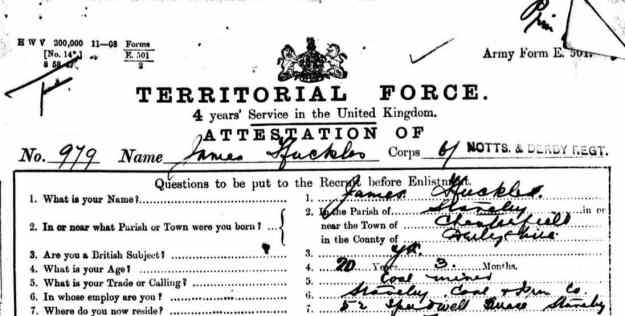 H W V 200,000 11—08 Forms
E. 501
[No. 14*.] 2
Army Form E. 501.
TERRITORIAL FORCE.
4 years' Service in the United Kingdom.
ATTESTATION OF
No. 979 Name James Huckles Corps 6/ NOTTS. & DERBY REGT.
Questions to be put to the Recruit before Enlistment.
1. What is your Name? 1. James Huckles.
2. In or near what Parish or Town were you born? 2. In the Parish of Staveley in or
near the Town of Chesterfield
in the County of Derbyshire
3. Are you a British Subject? 3. Yes
4. What is your Age? 4. 20 Years 3. Months.
5. What is your Trade or Calling? 5. Coal miner
6. In whose employ are you? 6. Staveley Coal & Iron Co.
7. Where do you now reside? 7. 52 Speedwell Staveley